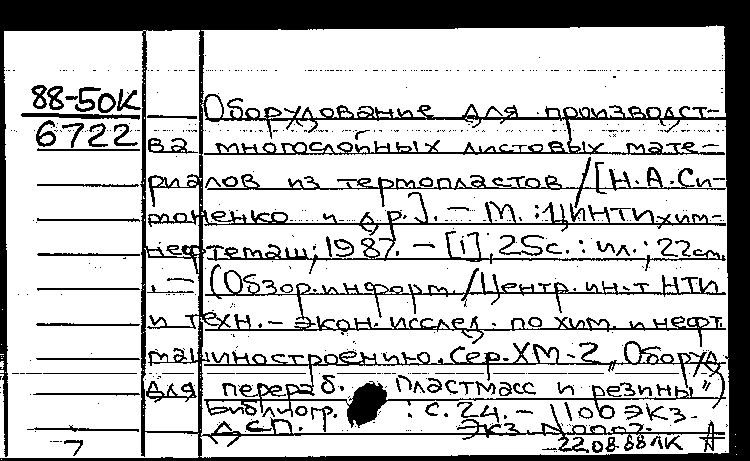 88-50К
6722
Оборудование для производст-
ва многослойных листовых мате-
риалов из термопластов / [Н.А.Си-
моненко и др.]. - М. : ЦИНТИхим-
нефтемаш, 1987. - [1], 25с. : ил. ; 22см.
. - (Обзор.информ. / Центр. ин-т НТИ
и техн.-экон. исслед. по хим. и нефт.
машиностроению. Сер. ХМ-2, „Оборуд.
для перераб. пластмасс и резины")
Библиогр. : с. 24. - 1100 экз.
ДСП. Экз. N
22.08.88 ЛК